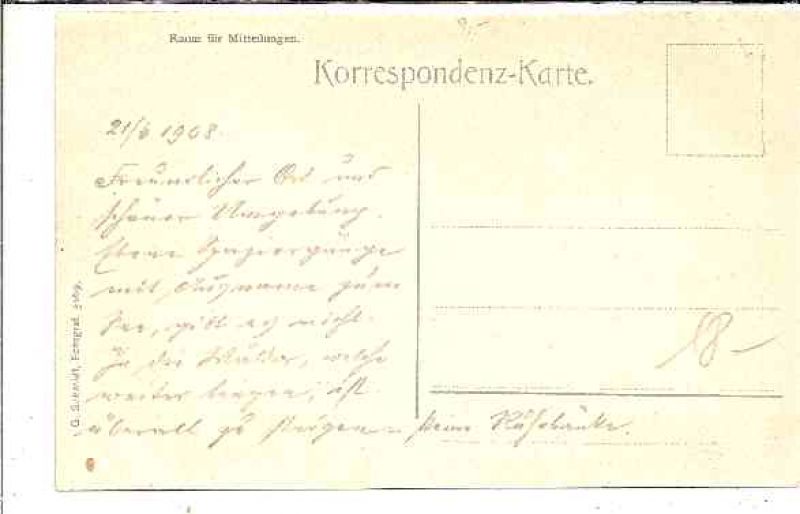 Raum für Mitteilungen.
Korrespondenz-Karte.
21/6 1908.
Freundlicher Ort und
schöner Umgebung.
Ebene Spaziergänge
mit Ausname zum
See, gibt es nicht.
In die Wälder, welche
weiter liegen, ist
überall zu steigen. keine Ruhebänke.
18–